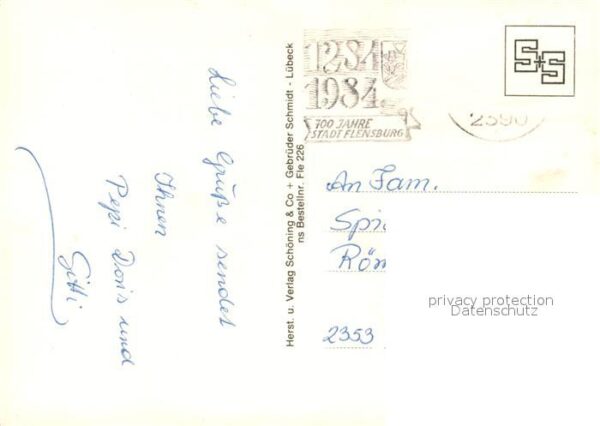 Liebe Grüße sendet
Ihnen
Pepi Doris und
Gitti
Herst. u. Verlag Schöning & Co + Gebrüder Schmidt - Lübeck
ns Bestellnr. Fle 226
1284
1984
700 JAHRE
STADT FLENSBURG
2390
S+S
An Fam.
Spi
Röm
2353
privacy protection
Datenschutz